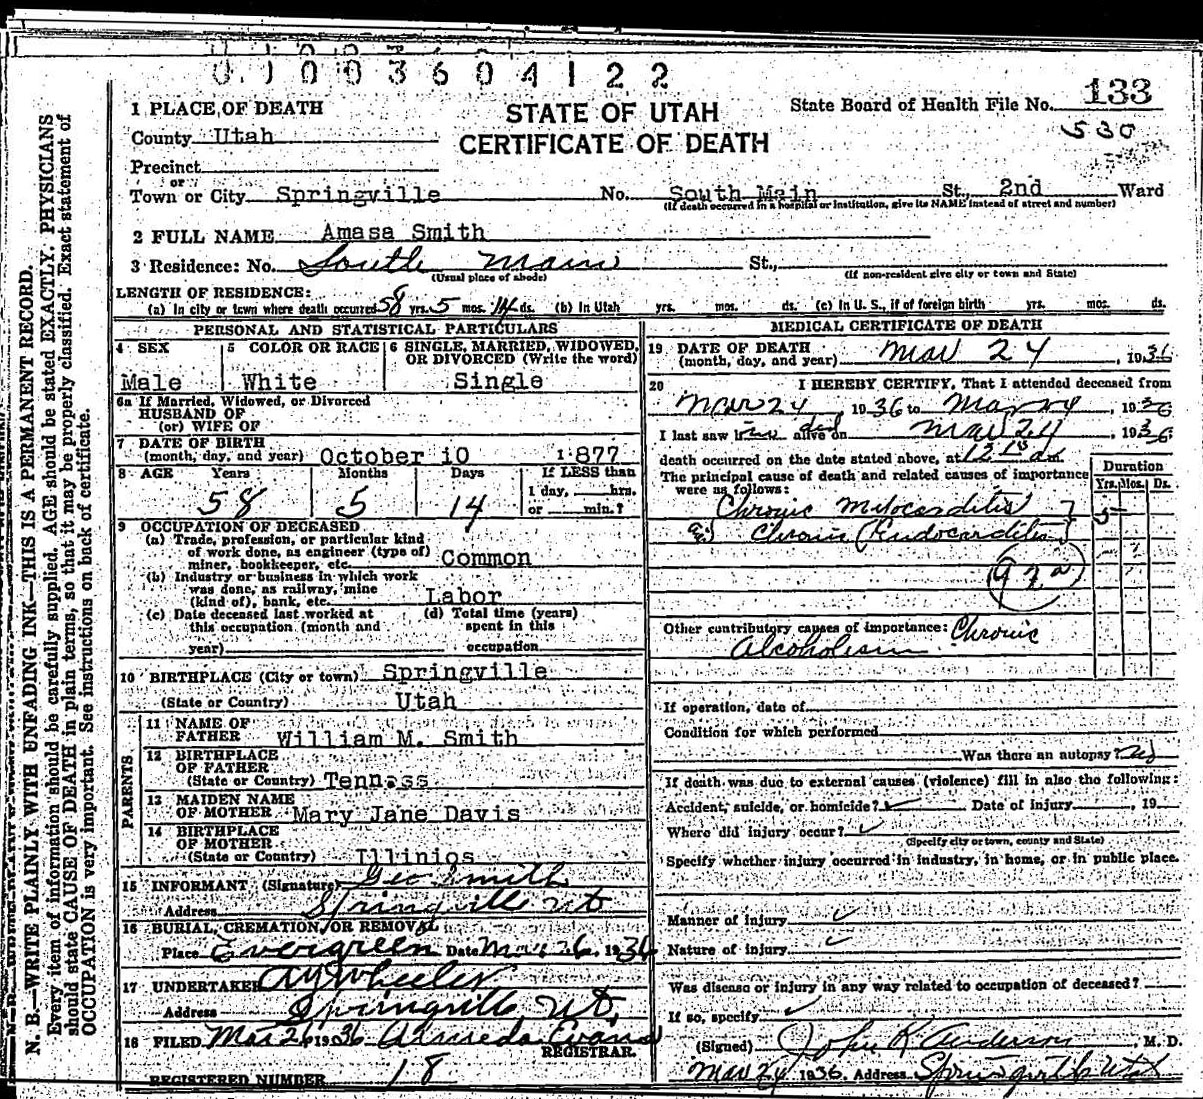 01003604122
1 PLACE OF DEATH
STATE OF UTAH
CERTIFICATE OF DEATH
State Board of Health File No. 133
530
County Utah
Precinct
or
Town or City Springville No. South Main St., 2nd Ward
(If death occurred in a hospital or institution, give its NAME instead of street and number)
2 FULL NAME Amasa Smith
3 Residence: No. South Main St.,
(Usual place of abode) (If non-resident give city or town and State)
LENGTH OF RESIDENCE:
(a) In city or town where death occurred 58 yrs. 5 mos. 14 ds. (b) In Utah yrs. mos. ds. (c) In U. S., if of foreign birth yrs. mos. ds.
PERSONAL AND STATISTICAL PARTICULARS
4 SEX
Male
5 COLOR OR RACE
White
6 SINGLE, MARRIED, WIDOWED,
OR DIVORCED (Write the word)
Single
6a If Married, Widowed, or Divorced
HUSBAND OF
(or) WIFE OF
7 DATE OF BIRTH
(month, day, and year) October 10 1877
8 AGE Years Months Days If LESS than
58 5 14 1 day, hrs.
or min.?
9 OCCUPATION OF DECEASED
(a) Trade, profession, or particular kind
of work done, as engineer (type of)
miner, bookkeeper, etc. Common
(b) Industry or business in which work
was done, as railway, mine
(kind of), bank, etc. Labor
(c) Date deceased last worked at
this occupation (month and
year)
(d) Total time (years)
spent in this
occupation
10 BIRTHPLACE (City or town) Springville
(State or Country) Utah
PARENTS
11 NAME OF
FATHER William M. Smith
12 BIRTHPLACE
OF FATHER
(State or Country) Tenness
13 MAIDEN NAME
OF MOTHER Mary Jane Davis
14 BIRTHPLACE
OF MOTHER
(State or Country) Illinios
15 INFORMANT (Signature) Geo Smith
Address Springville Ut
16 BURIAL, CREMATION, OR REMOVAL
Place Evergreen Date Mar. 26. 1936
17 UNDERTAKER A Y Wheeler
Address Springville, Ut,
18 FILED Mar 26 1936 Almeda Evans
REGISTRAR.
REGISTERED NUMBER 18
MEDICAL CERTIFICATE OF DEATH
19 DATE OF DEATH
(month, day, and year) Mar 24, 1936
20 I HEREBY CERTIFY, That I attended deceased from
Mar 24, 1936 to Mar 24, 1936
I last saw him alive on Mar 24, 1936
death occurred on the date stated above, at 12 15 am
The principal cause of death and related causes of importance
were as follows:
Duration
Yrs. Mos. Ds.
Chronic Myocarditis 5
Chronic Endocarditis
(92a)
Other contributory causes of importance: Chronic
Alcoholism
If operation, date of
Condition for which performed
Was there an autopsy? No
If death was due to external causes (violence) fill in also the following:
Accident, suicide, or homicide? Date of injury , 19
Where did injury occur?
(Specify city or town, county and State)
Specify whether injury occurred in industry, in home, or in public place.
Manner of injury
Nature of injury
Was disease or injury in any way related to occupation of deceased?
If so, specify
(Signed) John K Anderson, M. D.
Mar 24 1936. Address Springville Utah
N. B.—WRITE PLAINLY WITH UNFADING INK—THIS IS A PERMANENT RECORD.
Every item of information should be carefully supplied. AGE should be stated EXACTLY. PHYSICIANS
should state CAUSE OF DEATH in plain terms, so that it may be properly classified. Exact statement of
OCCUPATION is very important. See instructions on back of certificate.